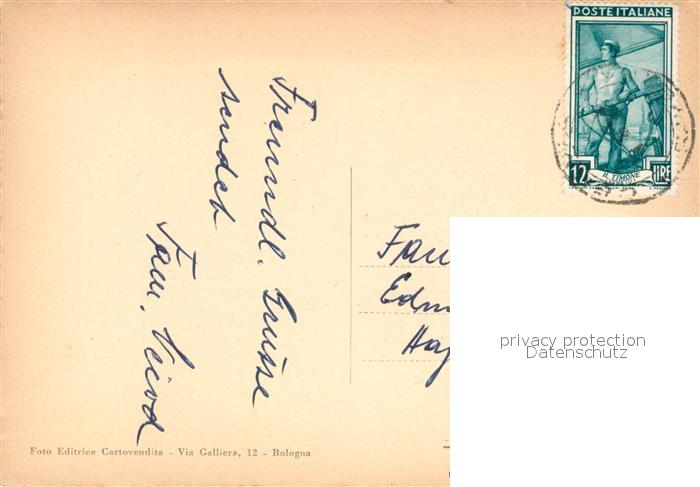 POSTE ITALIANE
12 LIRE
IL TIMONE
Freundl. Grüsse
sendet
Fam.
Fam
Edm
Hag
privacy protection
Datenschutz
Foto Editrice Cartovendita - Via Galliera, 12 - Bologna